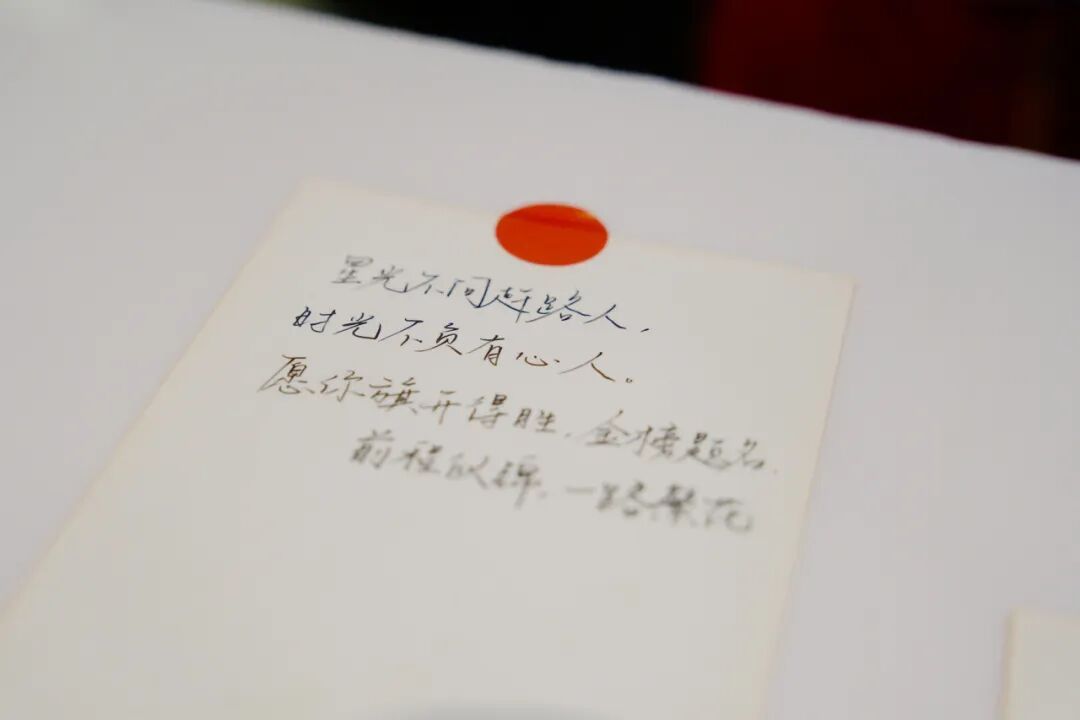 星光不问赶路人，
时光不负有心人。
愿你旗开得胜，金榜题名，
前程似锦，一路繁花